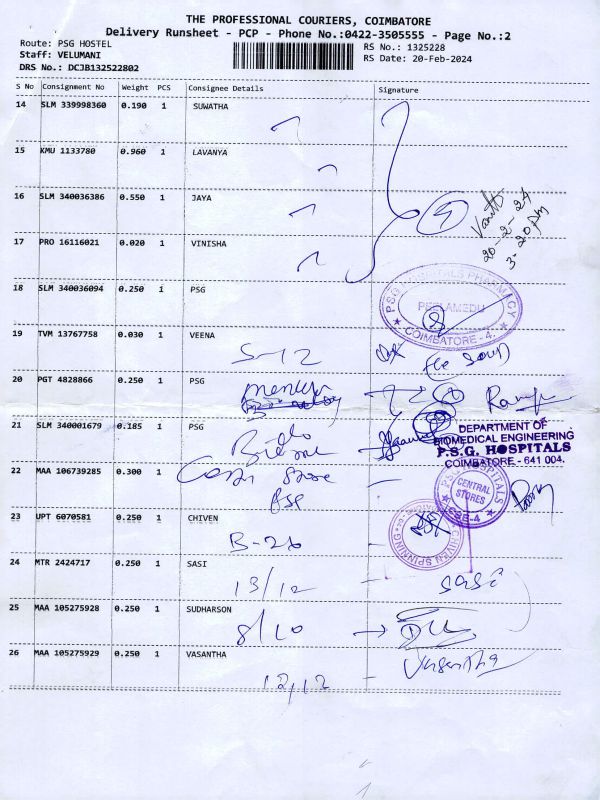 THE PROFESSIONAL COURIERS, COIMBATORE
Delivery Runsheet - PCP - Phone No.:0422-3505555 - Page No.:2
Route: PSG HOSTEL
Staff: VELUMANI
DRS No.: DCJB132522802
RS No.: 1325228
RS Date: 20-Feb-2024
S No Consignment No Weight PCS Consignee Details Signature
14 SLM 339998360 0.190 1 SUWATHA
15 KMU 1133780 0.960 1 LAVANYA
16 SLM 340036386 0.550 1 JAYA
17 PRO 16116021 0.020 1 VINISHA
20-2-24
3-20pm
18 SLM 340036094 0.250 1 PSG
PSG HOSPITALS PHARMACY
PEELAMEDU
COIMBATORE - 4.
19 TVM 13767758 0.030 1 VEENA
S-12
20 PGT 4828866 0.250 1 PSG
21 SLM 340001679 0.185 1 PSG
DEPARTMENT OF
BIOMEDICAL ENGINEERING
P.S.G. HOSPITALS
COIMBATORE - 641 004.
22 MAA 106739285 0.300 1
CENTRAL
STORES
CBE-4
23 UPT 6070581 0.250 1 CHIVEN
B-26
CHIVEN SPINNING
24 MTR 2424717 0.250 1 SASI
13/12 sasi
25 MAA 105275928 0.250 1 SUDHARSON
8/10
26 MAA 105275929 0.250 1 VASANTHA
Vasantha
12/12